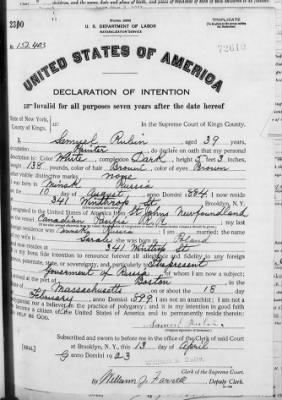 Form 2203
U. S. DEPARTMENT OF LABOR
NATURALIZATION SERVICE
TRIPLICATE
No. 152403
UNITED STATES OF AMERICA
DECLARATION OF INTENTION
Invalid for all purposes seven years after the date hereof
State of New York,
County of Kings,
In the Supreme Court of Kings County.
I, Samuel Rubin, aged 39 years,
occupation Painter, do declare on oath that my personal
description is: Color White, complexion Dark, height 5 feet 3 inches,
weight 138 pounds, color of hair Brown, color of eyes Brown
other visible distinctive marks none
I was born in Minsk Russia
on the 10 day of August, anno Domini 1884; I now reside
at 341 Winthrop St, Brooklyn, N. Y.
I emigrated to the United States of America from St Johns Newfoundland
on the vessel Canadian
residence was Russia; I am married; the name
Sarah; she was born in Poland
and now resides at 341
It is my bona fide intention to renounce forever all allegiance and fidelity to any foreign
prince, potentate, state, or sovereignty, and particularly to the present
Government of Russia, of whom I am now a subject;
I arrived at the port of Boston, in the
of Massachusetts, on or about the 18 day
of February, anno Domini 1899; I am not an anarchist; I am not a
polygamist nor a believer in the practice of polygamy; and it is my intention in good faith
to become a citizen of the United States of America and to permanently reside therein:
SO HELP ME GOD.
Samuel Rubin
Subscribed and sworn to before me in the office of the Clerk of said Court
at Brooklyn, N. Y., this 13 day of April
anno Domini 1923
[SEAL]
Clerk of the Supreme Court.
By William J. Farrell, Deputy Clerk.